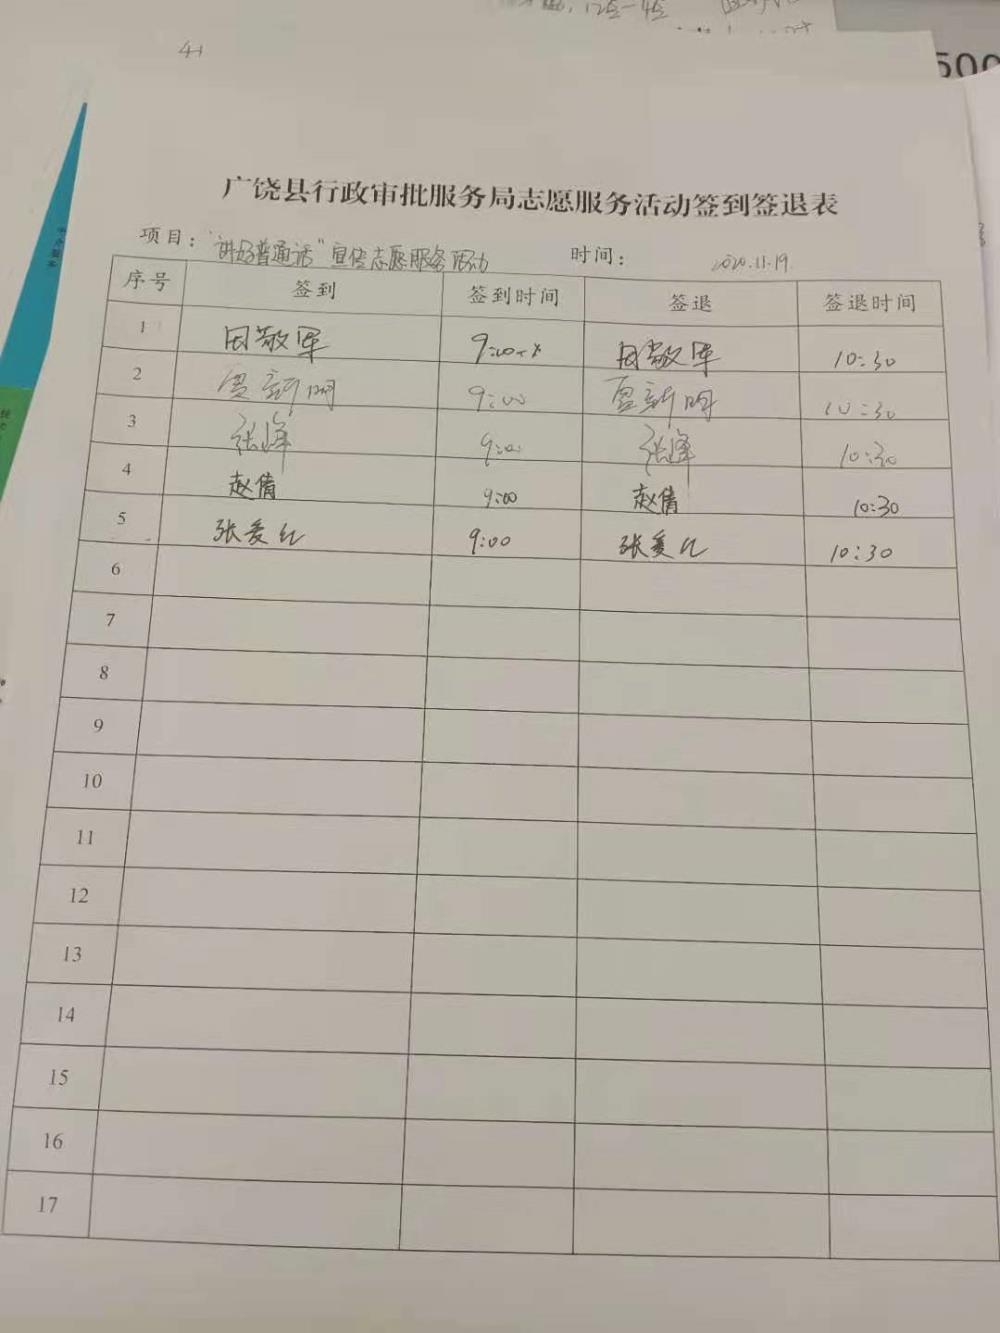 500
广饶县行政审批服务局志愿服务活动签到签退表
项目："讲好普通话"宣传志愿服务活动 时间： 2020.11.19
序号 签到 签到时间 签退 签退时间
1 田敬军 9:00 田敬军 10:30
2 贾新明 9:00 贾新明 10:30
3 张峰 9:00 张峰 10:30
4 赵倩 9:00 赵倩 10:30
5 张爱红 9:00 张爱红 10:30
6
7
8
9
10
11
12
13
14
15
16
17